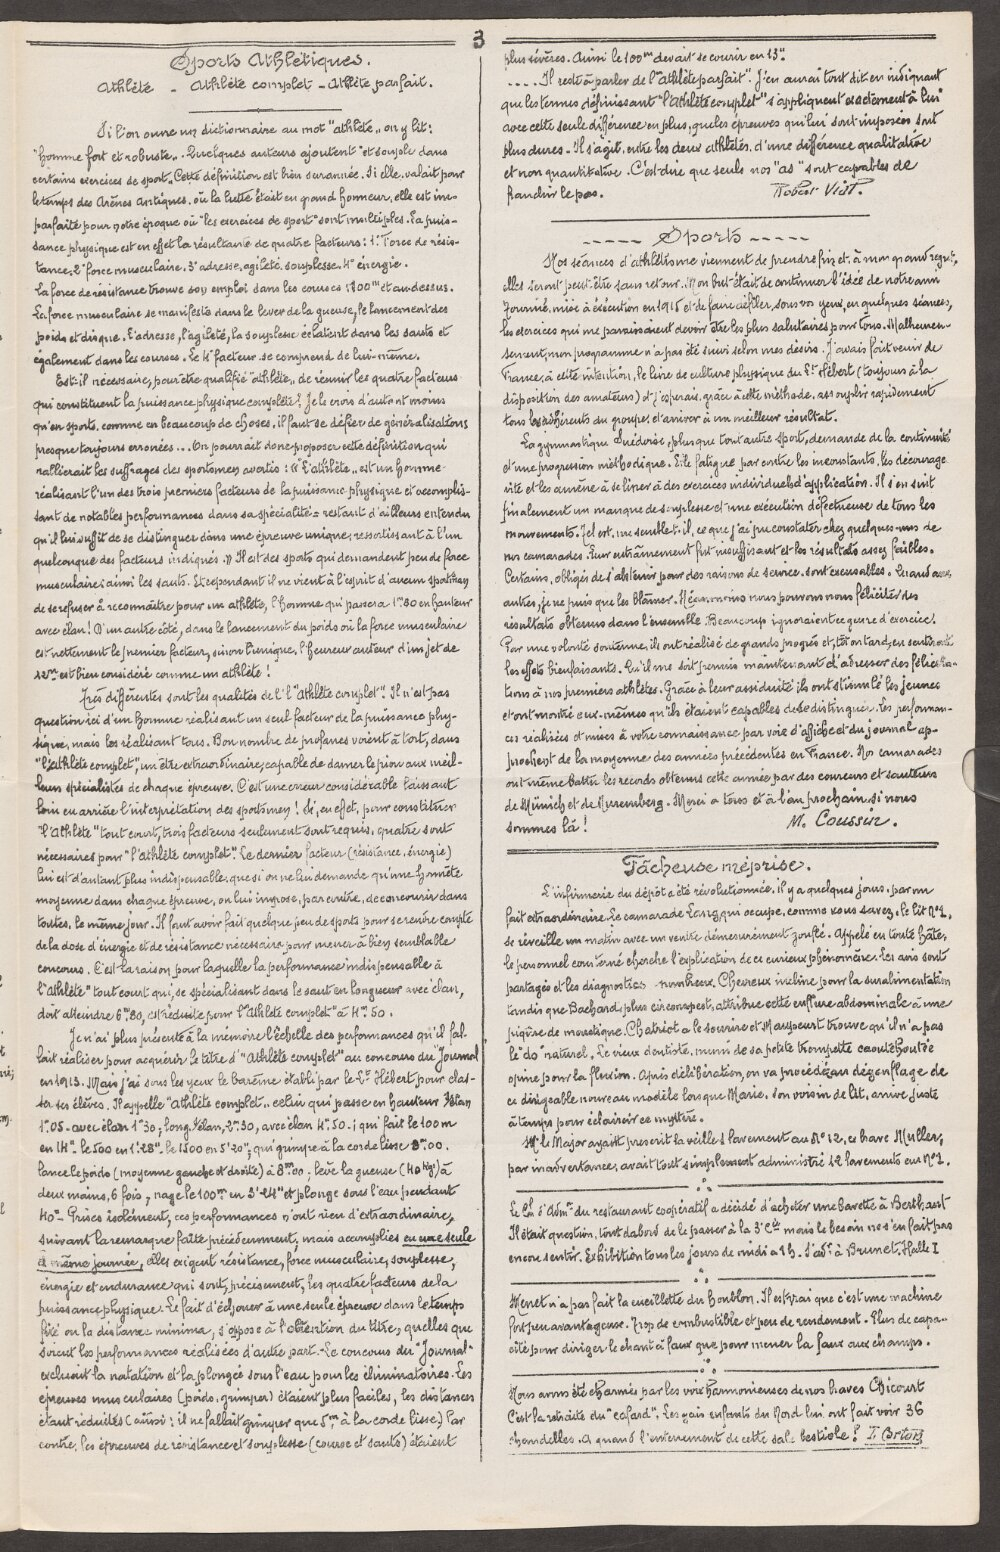 3
Sports Athlétiques.
Athlète - Athlète complet - Athlète parfait.
Si l'on ouvre un dictionnaire au mot "athlète", on y lit:
"homme fort et robuste". Quelques auteurs ajoutent "et souple dans
certains exercices de sport". Cette définition est bien surannée. Si elle valait pour
le temps des Arènes antiques, où la lutte était en grand honneur, elle est im-
parfaite pour notre époque où "les exercices de sport" sont multiples. La puis-
sance physique est en effet la résultante de quatre facteurs: 1° Force de résis-
tance, 2° force musculaire. 3° adresse, agilité, souplesse. 4° énergie.
La force de résistance trouve son emploi dans les courses 1800m et au-dessus.
La force musculaire se manifeste dans le lever de la gueuse, le lancement des
poids et disque. L'adresse, l'agilité, la souplesse éclatent dans les sauts et
également dans les courses. Le 4e facteur se comprend de lui-même.
Est-il nécessaire, pour être qualifié "athlète", de réunir les quatre facteurs
qui constituent la puissance physique complète? Je le crois d'autant moins
qu'en sports, comme en beaucoup de choses, il faut se défier de généralisations
presque toujours erronées... On pourrait donc proposer cette définition qui
rallierait les suffrages des sportsmen avertis: "L'athlète", est un homme
réalisant l'un des trois premiers facteurs de la puissance physique et accomplis-
sant de notables performances dans sa spécialité = restant d'ailleurs entendu
qu'il lui suffit de se distinguer dans une épreuve unique, ressortissant à l'un
quelconque des facteurs indiqués." Il est des sports qui demandent peu de force
musculaire: ainsi les sauts. Et cependant il ne vient à l'esprit d'aucun sportman
de se refuser à reconnaître pour un athlète, l'homme qui passera 1m80 en hauteur
avec élan! D'un autre côté, dans le lancement du poids où la force musculaire
est nettement le premier facteur, sinon l'unique, l'heureux auteur d'un jet de
12m est bien considéré comme un athlète!
Très différentes sont les qualités de l'"Athlète complet". Il n'est pas
question ici d'un homme réalisant un seul facteur de la puissance phy-
sique, mais les réalisant tous. Bon nombre de profanes voient à tort, dans
"l'athlète complet", un être extraordinaire, capable de damer le pion aux meil-
leurs spécialistes de chaque épreuve. C'est une erreur considérable laissant
loin en arrière l'interprétation des sportsmen! Si, en effet, pour constituer
"l'athlète" tout court, trois facteurs seulement sont requis, quatre sont
nécessaires pour "l'athlète complet". Le dernier facteur (résistance, énergie)
lui est d'autant plus indispensable, que si on ne lui demande qu'une honnête
moyenne dans chaque épreuve, on lui impose, par contre, de concourir dans
toutes, le même jour. Il faut avoir fait quelque peu de sports pour se rendre compte
de la dose d'énergie et de résistance nécessaire pour mener à bien semblable
concours. C'est la raison pour laquelle la performance indispensable à
l'"Athlète" tout court qui, se spécialisant dans le saut en longueur avec élan,
doit atteindre 6m80, est réduite pour l'Athlète complet" à 4m50.
Je n'ai plus présente à la mémoire l'échelle des performances qu'il fal-
lait réaliser pour acquérir le titre d'"Athlète complet" au concours du "Journal"
en 1913. Mais j'ai sous les yeux le barème établi par le Lt Hébert pour clas-
ser ses élèves. Il appelle "Athlète complet", celui qui passe en hauteur s/élan
1m05 - avec élan 1m30; long. s/élan, 2m30, avec élan 4m50; qui fait le 100m
en 14" - le 500 en 1'28" - le 1500 en 5'20"; qui grimpe à la corde lisse 8m00.
lance le poids (moyenne gauche et droite) à 8m00. lève la gueuse (40kgs) à
deux mains, 6 fois, nage le 100m en 3'24" et plonge sous l'eau pendant
40". Prises isolément, ces performances n'ont rien d'extraordinaire,
suivant la remarque faite précédemment, mais accomplies en une seule
et même journée, elles exigent résistance, force musculaire, souplesse,
énergie et endurance qui sont, précisément, les quatre facteurs de la
puissance physique. Le fait d'échouer à une seule épreuve dans le temps
fixé ou la distance minima, s'oppose à l'obtention du titre, quelles que
soient les performances réalisées d'autre part. Le concours du "Journal"
excluait la natation et la plongée sous l'eau pour les éliminatoires. Les
épreuves musculaires (poids, grimper) étaient plus faciles, les distances
étant réduites (ainsi: il ne fallait grimper que 5m à la corde lisse) Par
contre, les épreuves de résistance et souplesse (course et sauts) étaient
plus sévères. Ainsi le 100m devait se courir en 13".
.... Il reste à parler de l'"athlète parfait". J'en aurai tout dit en indiquant
que les termes définissant "l'athlète complet" s'appliquent exactement à lui
avec cette seule différence en plus, que les épreuves qui lui sont imposées sont
plus dures. Il s'agit, entre les deux athlètes, d'une différence qualitative
et non quantitative. C'est dire que seuls nos "as" sont capables de
franchir le pas.
Robert Viet.
----- Sports -----
Nos séances d'athlétisme viennent de prendre fin et, à mon grand regret,
elles seront peut-être sans retour. Mon but était de continuer l'idée de notre ami
Journé, mise à exécution en 1916 et de faire défiler, sous vos yeux, en quelques séances,
les exercices qui me paraissaient devoir être les plus salutaires pour tous. Malheureu-
sement, mon programme n'a pas été suivi selon mes désirs. J'avais fait venir de
France, à cette intention, le livre de culture physique du Lt Hébert (toujours à la
disposition des amateurs) et j'espérais, grâce à cette méthode, assouplir rapidement
tous les adhérents du groupe, et arriver à un meilleur résultat.
La gymnastique Suédoise, plus que tout autre sport, demande de la continuité
et une progression méthodique. Elle fatigue par contre les inconstants, les décourage
vite et les amène à se livrer à des exercices individuels d'application. Il s'en suit
finalement un manque de souplesse et une exécution défectueuse de tous les
mouvements. Tel est, me semble-t-il, ce que j'ai pu constater chez quelques-uns de
nos camarades. Leur entraînement fut insuffisant et les résultats assez faibles.
Certains, obligés de s'abstenir pour des raisons de service, sont excusables. Quand aux
autres, je ne puis que les blâmer. Néanmoins nous pouvons nous féliciter des
résultats obtenus dans l'ensemble. Beaucoup ignoraient ce genre d'exercice.
Par une volonté soutenue, ils ont réalisé de grands progrès et, tôt ou tard, en sentiront
les effets bienfaisants. Qu'il me soit permis maintenant d'adresser des félicita-
tions à nos premiers athlètes. Grâce à leur assiduité ils ont stimulé les jeunes
et ont montré eux-mêmes qu'ils étaient capables de se distinguer. Les performan-
ces réalisées et mises à votre connaissance par voie d'affiche et du journal ap-
prochent de la moyenne des années précédentes en France. Nos camarades
ont même battu les records obtenus cette année par des coureurs et sauteurs
de Munich et de Nuremberg. Merci à tous et à l'an prochain, si nous
sommes là!
M. Coussin.
Fâcheuse méprise.
L'infirmerie du dépôt a été révolutionnée, il y a quelques jours, par un
fait extraordinaire. Le camarade Larrq qui occupe, comme vous savez, le lit N°2,
se réveille un matin avec un ventre démesurément gonflé. Appelé en toute hâte,
le personnel consterné cherche l'explication de ce curieux phénomène. Les avis sont
partagés et les diagnostics nombreux. Chevreux incline pour la suralimentation
tandis que Bachard, plus circonspect, attribue cette enflure abdominale à une
piqûre de moustique. Chatriot a le sourire et Maupeurt trouve qu'il n'a pas
le "do" naturel. Le vieux dentiste, muni de sa petite trompette caoutchoutée
opine pour la fluxion. Après délibération, on va procéder au dégonflage de
ce dirigeable nouveau modèle lorsque Marie, son voisin de lit, arrive juste
à temps pour éclaircir ce mystère.
Mr le Major ayant prescrit la veille 1 lavement au N°12, ce brave Muller,
par inadvertance, avait tout simplement administré 12 lavements au N°1.
Le Con d'Admon du restaurant coopératif a décidé d'acheter une bavette à Berth, ast
Il était question, tout d'abord de le passer à la 3e Cie mais le besoin ne s'en fait pas
encore sentir. Exhibition tous les jours de midi à 1h. S'adr à Brunet, Halle I
Menet n'a pas fait la cueillette du houblon. Il est vrai que c'est une machine
fort peu avantageuse. Trop de combustible et peu de rendement. Plus de capa-
cité pour diriger le chant à faux que pour mener la faux aux champs.
Nous avons été charmés par les voix harmonieuses de nos braves Chicourt
C'est la retraite du "cafard". Les gais enfants du Nord lui ont fait voir 36
chandelles. A quand l'enterrement de cette sale bestiole?